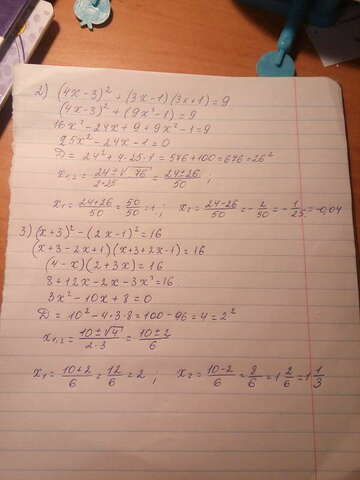 2) (4x-3)² + (3x-1)(3x+1) = 9
(4x-3)² + (9x²-1) = 9
16x² - 24x + 9 + 9x² - 1 = 9
25x² - 24x - 1 = 0
D = 24² + 4·25·1 = 576 + 100 = 676 = 26²
x₁,₂ = (24 ± √676)/(2·25) = (24 ± 26)/50 ;
x₁ = (24+26)/50 = 50/50 = 1 ; x₂ = (24-26)/50 = -2/50 = -1/25 = -0,04
3) (x+3)² - (2x-1)² = 16
(x+3-2x+1)(x+3+2x-1) = 16
(4-x)(2+3x) = 16
8 + 12x - 2x - 3x² = 16
3x² - 10x + 8 = 0
D = 10² - 4·3·8 = 100 - 96 = 4 = 2²
x₁,₂ = (10 ± √4)/(2·3) = (10 ± 2)/6
x₁ = (10+2)/6 = 12/6 = 2 ; x₂ = (10-2)/6 = 8/6 = 1 2/6 = 1 1/3